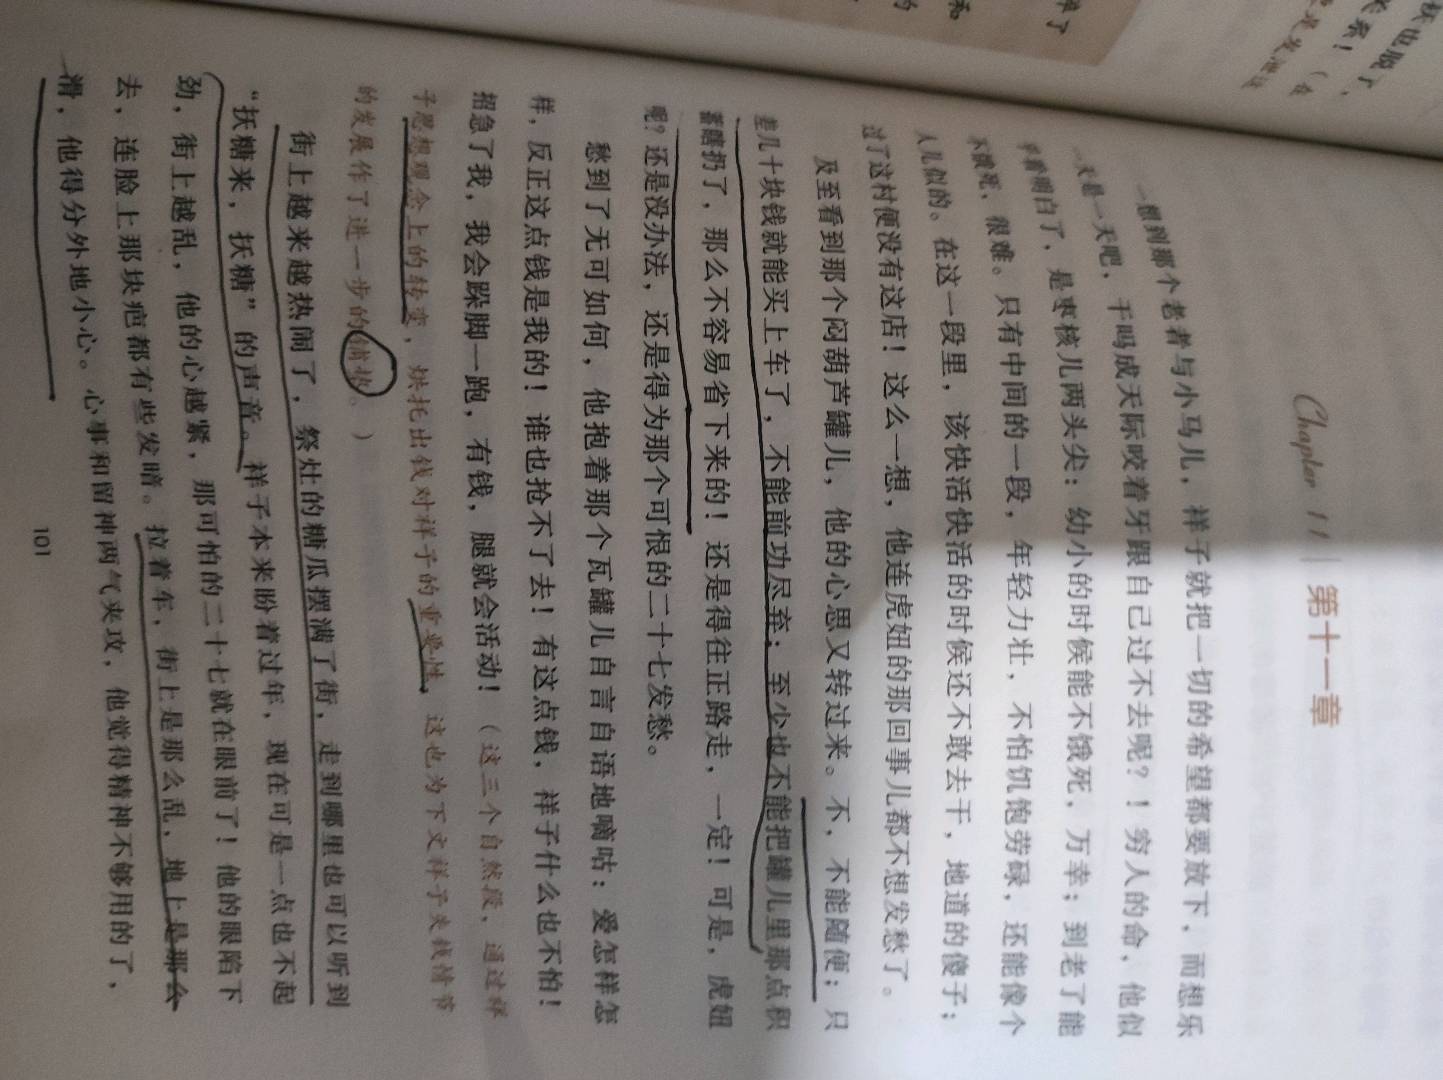 Chapter 11 | 第十一章
一想到那个老者与小马儿，祥子就把一切的希望都要放下，而想乐
一天是一天吧，干吗成天际咬着牙跟自己过不去呢？！穷人的命，他似
乎看明白了，是枣核儿两头尖：幼小的时候能不饿死，万幸；到老了能
不饿死，很难。只有中间的一段，年轻力壮，不怕饥饱劳碌，还能像个
人儿似的。在这一段里，该快活快活的时候还不敢去干，地道的傻子；
过了这村便没有这店！这么一想，他连虎妞的那回事儿都不想发愁了。
及至看到那个闷葫芦罐儿，他的心思又转过来。不，不能随便；只
差几十块钱就能买上车了，不能前功尽弃；至少也不能把罐儿里那点积
蓄瞎扔了，那么不容易省下来的！还是得往正路走，一定！可是，虎妞
呢？还是没办法，还是得为那个可恨的二十七发愁。
愁到了无可如何，他抱着那个瓦罐儿自言自语地嘀咕：爱怎样怎
样，反正这点钱是我的！谁也抢不了去！有这点钱，祥子什么也不怕！
招急了我，我会跺脚一跑，有钱，腿就会活动！（这三个自然段，通过祥
子思想观念上的转变，烘托出钱对祥子的重要性，这也为下文祥子失钱情节
的发展作了进一步的铺垫。）
街上越来越热闹了，祭灶的糖瓜摆满了街，走到哪里也可以听到
“扶糖来，扶糖”的声音。祥子本来盼着过年，现在可是一点也不起
劲，街上越乱，他的心越紧，那可怕的二十七就在眼前了！他的眼陷下
去，连脸上那块疤都有些发暗。拉着车，街上是那么乱，地上是那么
滑，他得分外地小心。心事和留神两气夹攻，他觉得精神不够用的了，
101